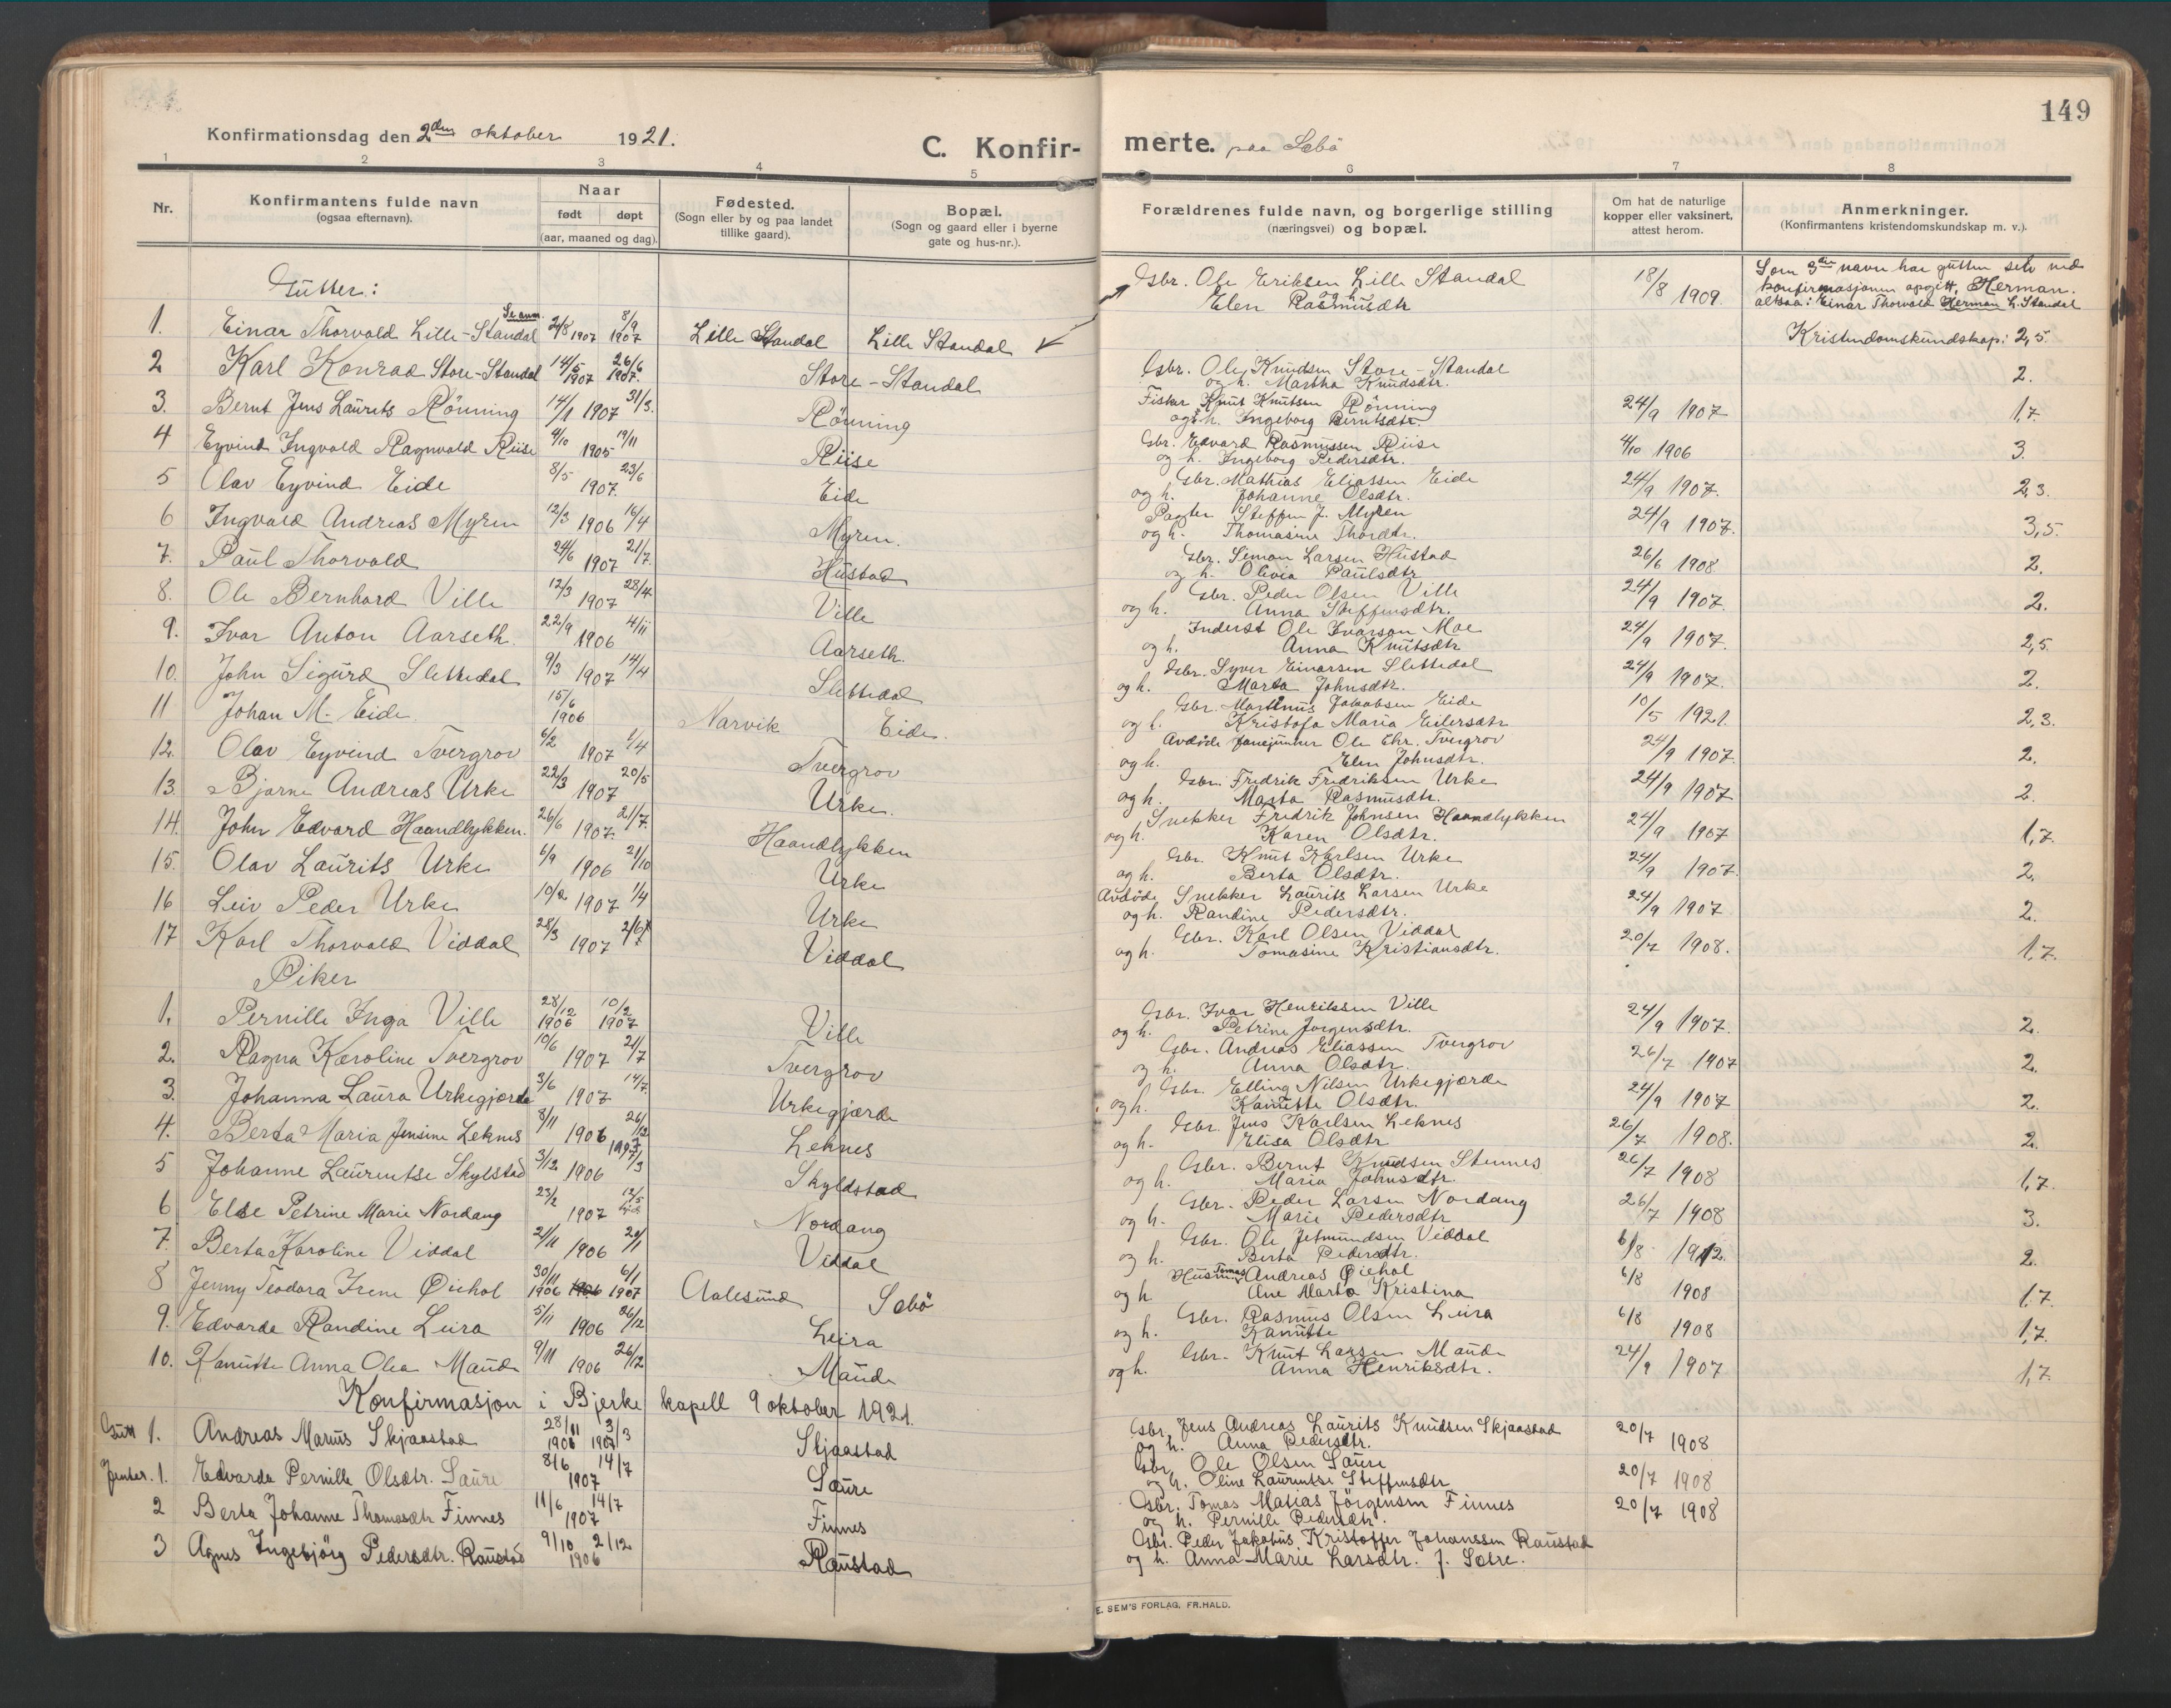 149
Konfirmationsdag den 2den oktober 1921.
C. Konfir- merte. paa Sæbö
1 2 3 4 5 6 7 8
Nr.
Konfirmantens fulde navn
(ogsaa efternavn).
Naar
født døpt
(aar, maaned og dag).
Fødested.
(Sogn eller by og paa landet
tillike gaard).
Bopæl.
(Sogn og gaard eller i byerne
gate og hus-nr.).
Forældrenes fulde navn, og borgerlige stilling
(næringsvei) og bopæl.
Om hat de naturlige
kopper eller vaksinert,
attest herom.
Anmerkninger.
(Konfirmantens kristendomskundskap m. v.).
Gutter:
1. Einar Thorvald Lille-Standal Se anm. 24/8 1907 8/9 1907 Lille Standal Lille Standal
Gbr. Ole Eriksen Lille Standal
og h. Elen Rasmusdtr 18/8 1909.
Som 3die navn har gutten selv ved
konfirmasjonen opgitt, Herman.
altsaa: Einar Thorvald Herman L. Standal
Kristendomskundskap: 2,5.
2 Karl Konrad Store-Standal 14/5 1907 26/6 1907. Store-Standal
Gbr. Ole Knudsen Store-Standal
og h. Martha Knudsdtr. 2.
3. Bernt Jens Laurits Rönning 14/1 1907 31/3. Rönning
Fisker Knut Knutsen Rönning
og h. Ingeborg Berntsdtr. 24/9 1907 1,7.
4 Eyvind Ingvald Ragnvald Riise 4/10 1905 19/11 Riise
Gbr. Edvard Rasmussen Riise
og h. Ingeborg Pedersdtr. 4/10 1906 3.
5 Olav Eyvind Eide 8/5 1907. 23/6 Eide
Gbr. Mathias Eliassen Eide
og h. Johanne Olsdtr. 24/9 1907. 2,3.
6 Ingvald Andreas Myren 12/3 1906 16/4 Myren.
Pagter Steffen J. Myren
og h. Thomasine Thordtr. 24/9 1907. 3,5.
7. Paul Thorvald 24/6 1907 21/7. Hustad
Gbr. Simon Larsen Hustad
og h. Olivia Paulsdtr 26/6 1908 2.
8. Ole Bernhard Ville 12/3 1907 28/4. Ville
Gbr. Peder Olsen Ville
og h. Anna Steffensdtr. 24/9 1907. 2.
9. Ivar Anton Aarseth. 22/9 1906 4/11 Aarseth.
Inderst Ole Ivarson Moe
og h. Anna Knutsdtr 24/9 1907. 2,5.
10. John Sigurd Slettedal 9/3 1907 14/4 Slettedal
Gbr. Syver Einarsen Slettedal
og h. Marta Johnsdtr. 24/9 1907. 2.
11 Johan M. Eide 15/6 1906 Narvik Eide.
Gbr. Martinus Jakobsen Eide
og h. Kristofa Maria Eilersdtr 10/5 1921. 2,3.
12. Olav Eyvind Tvergrov 6/2 1907 1/4 Tvergrov
Avdöde Ole Ehr. Tvergrov
og h. Elen Johnsdtr. 24/9 1907. 2.
13. Bjarne Andreas Urke 22/3 1907 20/5 Urke.
Gbr. Fredrik Fredriksen Urke
og h. Marta Rasmusdtr. 24/9 1907 2.
14. John Edvard Haandlykken. 26/6 1907. 21/7. Haandlykken
Snekker Fredrik Johnsen Haandlykken
og h. Karen Olsdtr. 24/9 1907 1,7.
15. Olav Laurits Urke 6/9 1906 21/10 Urke
Gbr. Knut Karlsen Urke
og h. Berta Olsdtr. 24/9 1907. 2.
16 Leiv Peder Urke 10/2 1907 1/4 Urke
Avdöde Snekker Laurits Larsen Urke
og h. Randine Pedersdtr. 24/9 1907 2.
17 Karl Thorvald Viddal 28/3 1907 Viddal
Gbr. Karl Olsen Viddal
og h. Tomasine Kristiansdtr. 20/7 1908. 1,7.
Piker
1. Pernille Inga Ville 28/12 1906 10/2 1907 Ville
Gbr. Ivar Henriksen Ville
og h. Petrine Jorgensdtr. 24/9 1907. 2.
2. Ragna Karoline Tvergrov 10/6 1907 21/7 Tvergrov
Gbr. Andreas Eliassen Tvergrov
og h. Anna Olsdtr. 26/7 1907 2.
3. Johanna Laura Urkegjerde 3/6 1907 14/7. Urkegjerde
Gbr. Elling Nilsen Urkegjerde
og h. Kanutte Olsdtr. 24/9 1907 2.
4. Berta Maria Jensine Leknes 8/11 1906 26/12 Leknes
Gbr. Jens Karlsen Leknes
og h. Elisa Olsdtr 26/7 1908. 2.
5 Johanne Laurentse Skylstad 3/12 1906 1907 1/3 Skyldstad
Gbr. Bernt Knudsen Stennes
og h. Maria Johnsdtr. 26/7 1908 1,7.
6 Else Petrine Marie Nordang 23/2 1907 12/5 Nordang
Gbr. Peder Larsen Nordang
og h. Marie Pedersdtr 26/7 1908 3.
7. Berta Karoline Viddal 21/11 1906 20/1 Viddal
Gbr. Ole Jetmundsen Viddal
og h. Berta Pedersdtr. 6/8 1912. 2.
8 Jenny Teodora Irene Öiehol 30/11 1906 1906 6/1 1907 Aalesund Sæbö
Husm. Tomas Andreas Öiehol
og h Ane Marta Kristina 6/8 1908 1,7.
9. Edvarda Randine Leira 5/11 1906 26/12 Leira
Gbr. Rasmus Olsen Leira
og h. Kanutte 6/8 1908 1,7.
10. Kanutte Anna Olea Maude 9/11 1906 26/12 Maude
Gbr. Knut Larsen Maude
og h. Anna Henriksdtr. 24/9 1907 1,7.
Konfirmasjon i Bjerke kapell 9 oktober 1921.
Gutt 1. Andreas Marius Skjaastad 28/11 1906 3/3 1907 Skjaastad
Gbr. Jens Andreas Laurits Knudsen Skjaastad
og h. Anna Pedersdtr. 20/7 1908
Jenter. 1. Edvarda Pernille Olsdtr. Saure 8/6 1907 14/7 Saure
Gbr. Ole Olsen Saure
og h. Oline Laurentse Steffensdtr 20/7 1908
2 Berta Johanne Thomasdtr Finnes 11/6 1907 14/7 Finnes
Gbr. Tomas Matias Jörgensen Finnes
og h. Pernille Pedersdtr. 20/7 1908
3 Agnes Ingebjörg Pedersdtr. Raustad 9/10 1906 2/12 Raustad
Gbr. Peder Jakobus Kristoffer Johanssen Raustad
og h. Anna-Marie Larsdtr. f. Sætre.
E. SEM'S FORLAG, FR.HALD.